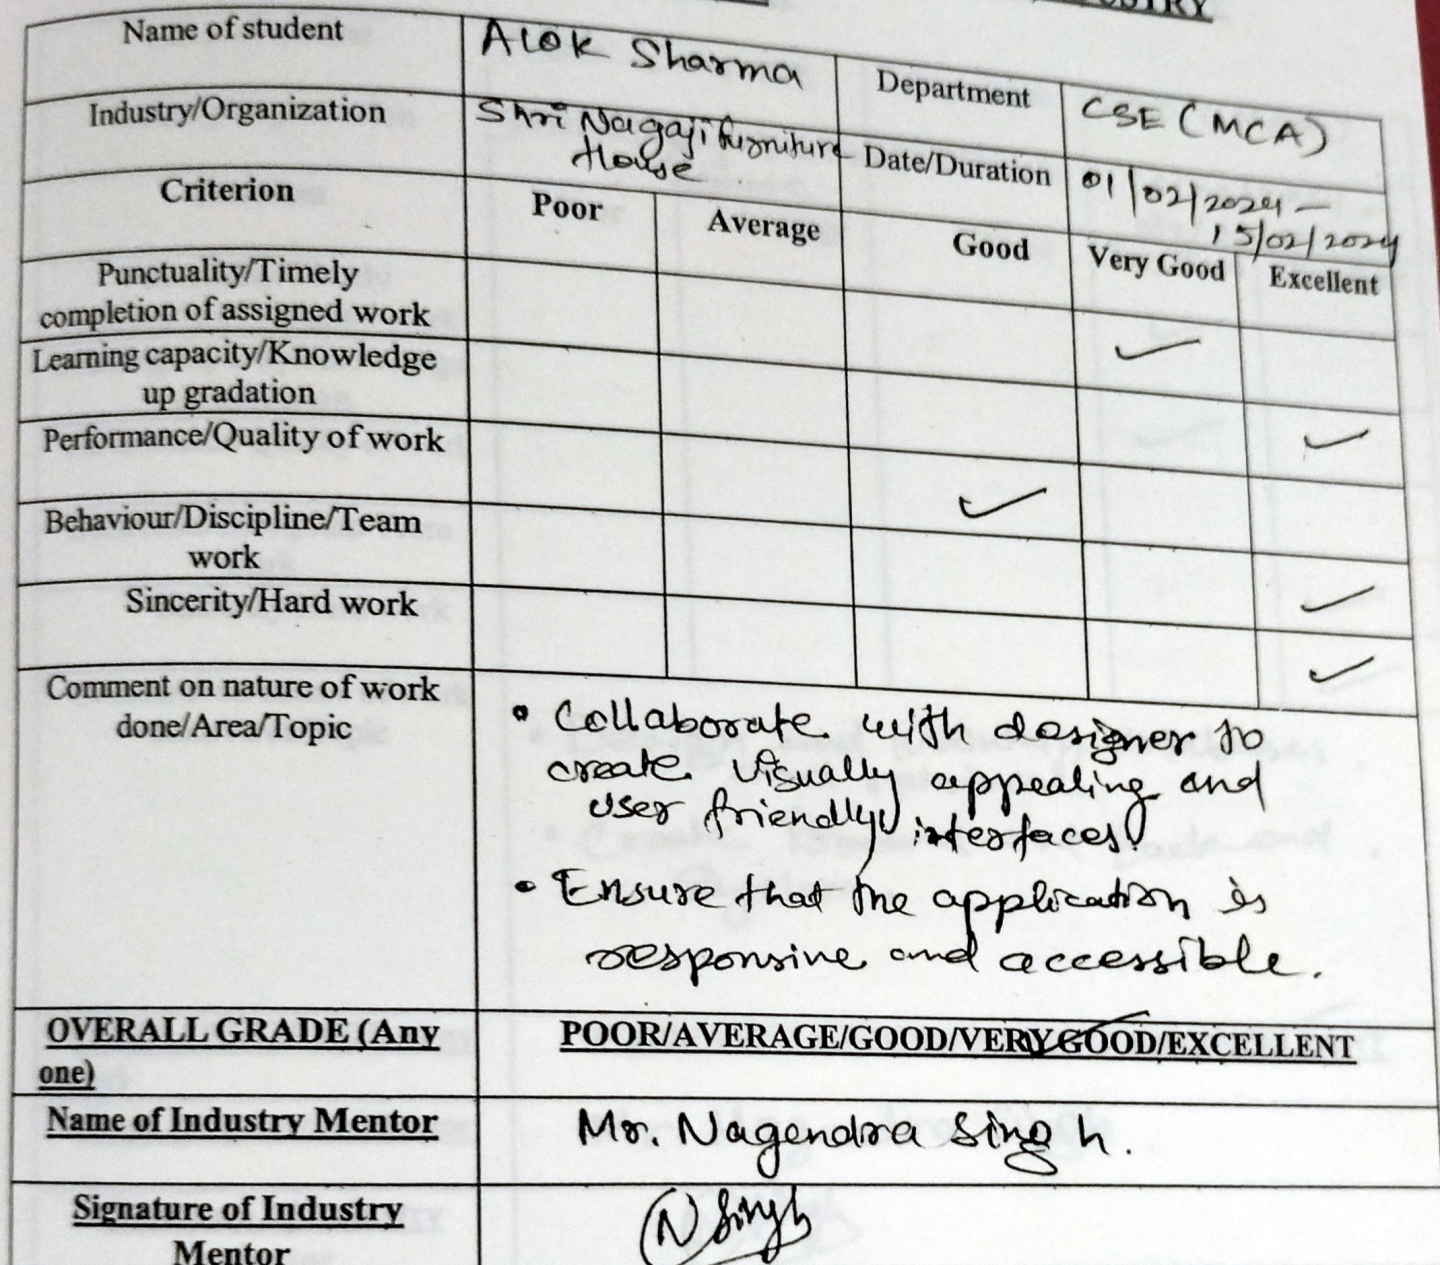 Name of student
Alok Sharma
Department
CSE (MCA)
Industry/Organization
Shri Nagaji furniture
House
Date/Duration
01/02/2024 -
15/02/2024
Criterion
Poor
Average
Good
Very Good
Excellent
Punctuality/Timely
completion of assigned work
Learning capacity/Knowledge
up gradation
Performance/Quality of work
Behaviour/Discipline/Team
work
Sincerity/Hard work
Comment on nature of work
done/Area/Topic
• Collaborate with designer to
create visually appealing and
user friendly interfaces.
• Ensure that the application is
responsive and accessible.
OVERALL GRADE (Any
one)
POOR/AVERAGE/GOOD/VERY GOOD/EXCELLENT
Name of Industry Mentor
Mr. Nagendra Singh.
Signature of Industry
Mentor
N Singh